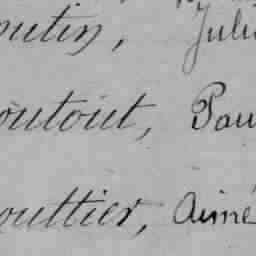 outin, Juli
outout, Pau
outtier, Aimé